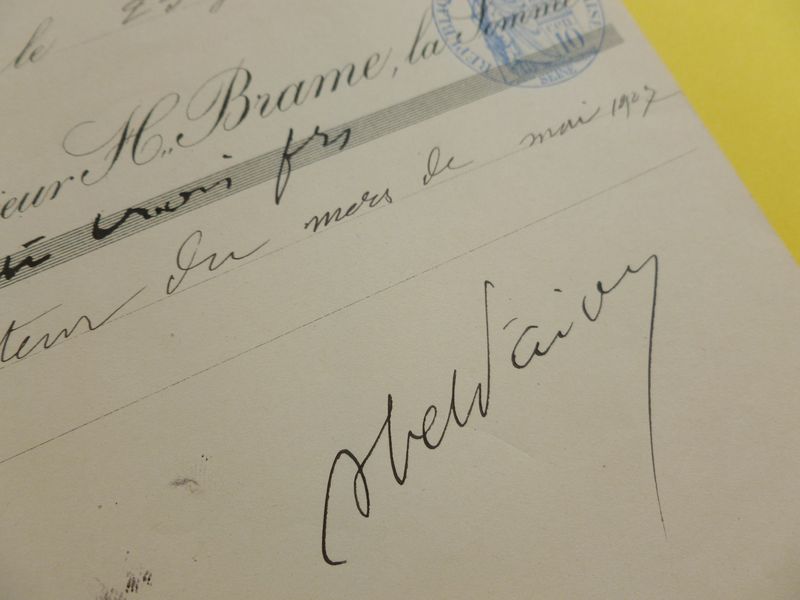 le 25
RÉPUBL
AISE
10
SEINE
ieur H. Brame, la Somme
trois frs
teur du mois de mai 1907
Abel Tarride